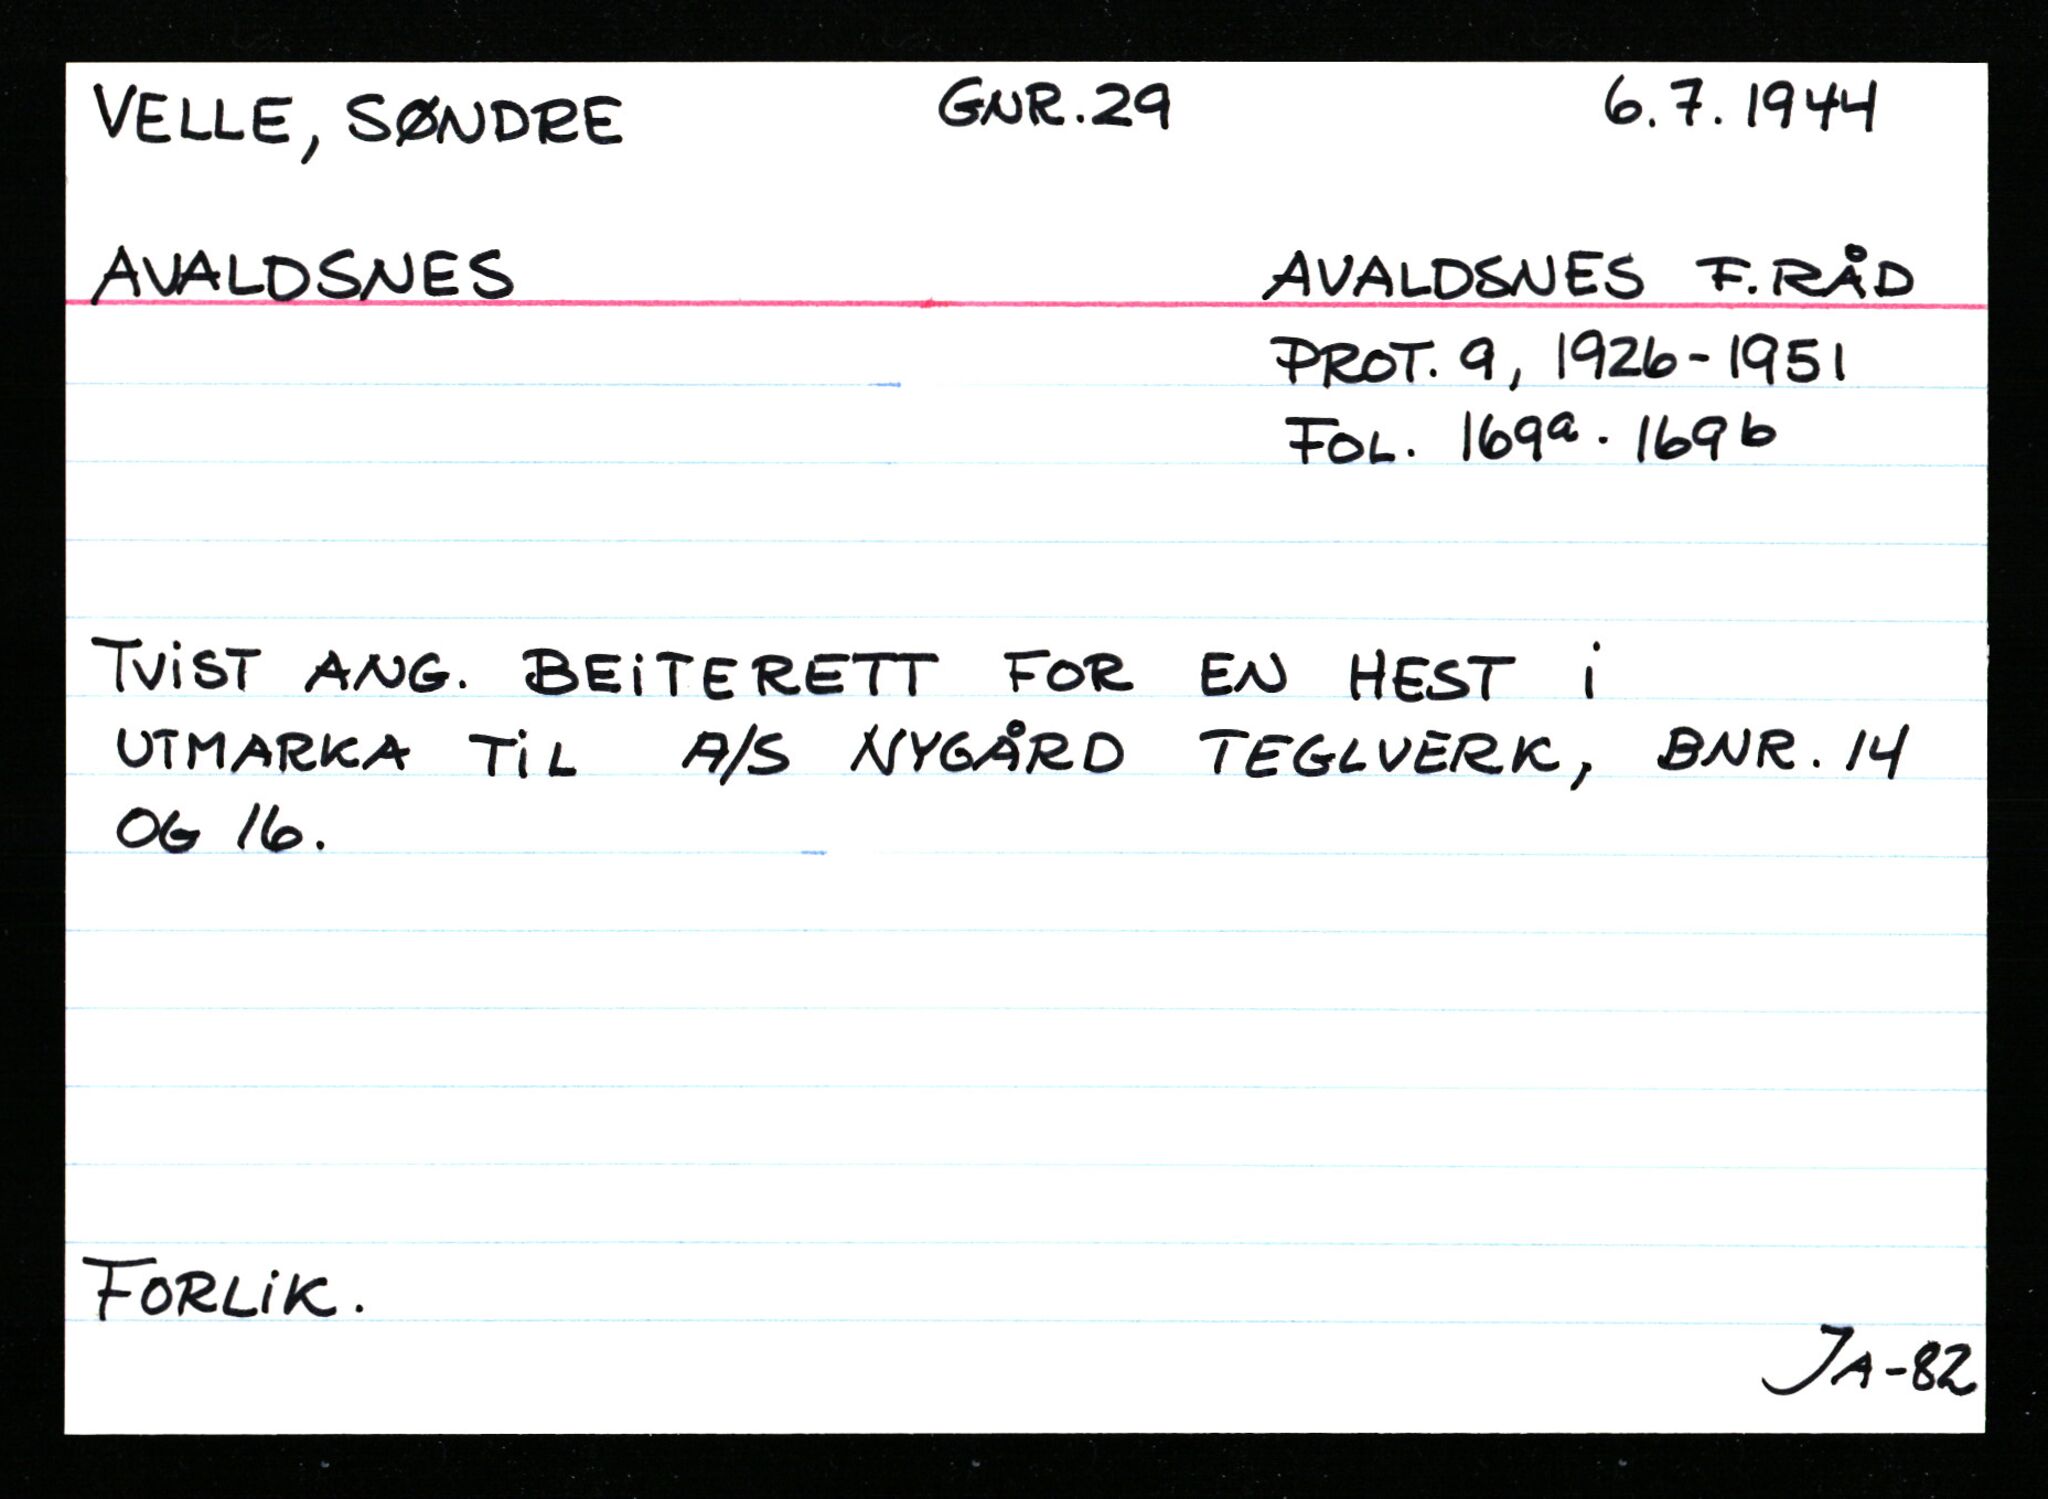 VELLE, SØNDRE GNR. 29 6.7.1944
AVALDSNES AVALDSNES F.RÅD
PROT. 9, 1926-1951
FOL. 169a. 169b
TViST ANG. BEiTERETT FOR EN HEST i
UTMARKA TiL A/S NYGÅRD TEGLVERK, BNR. 14
OG 16.
FORLiK.
JA-82